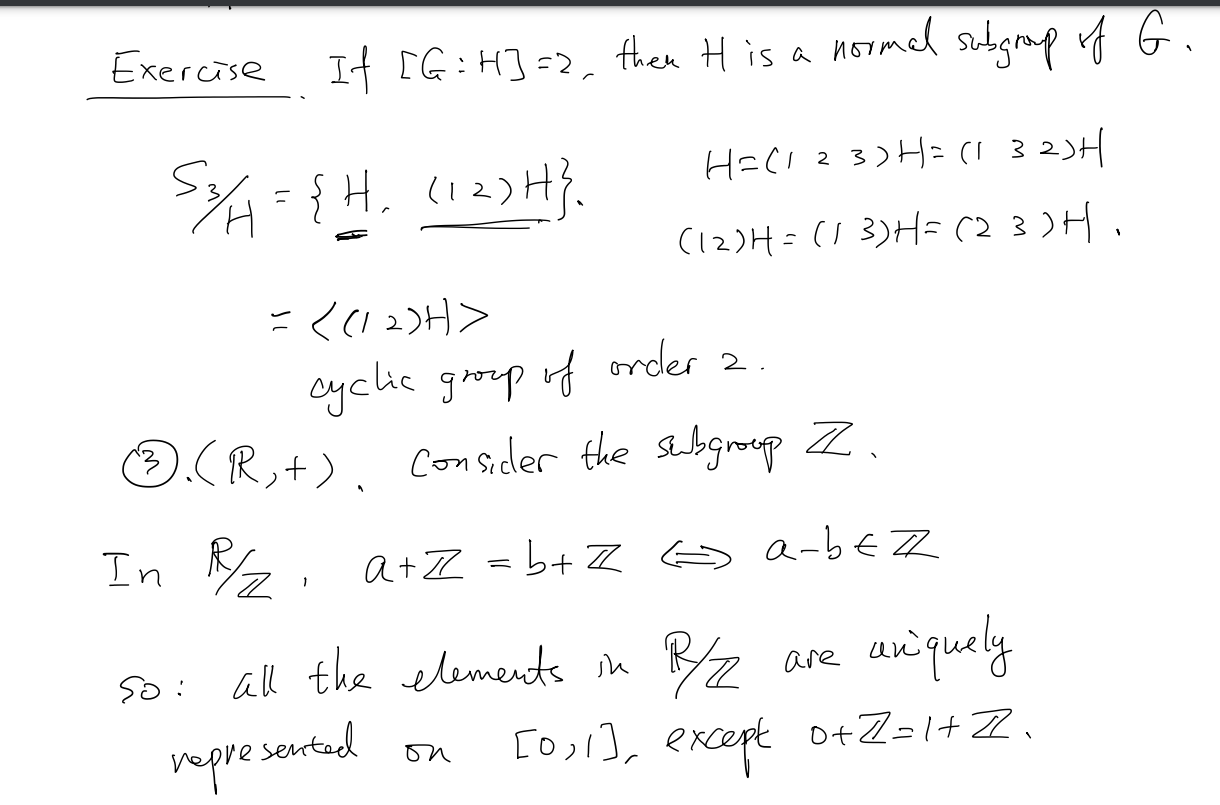 Exercise. If [G:H]=2, then H is a normal subgroup of G.
S₃/H = {H, (12)H}. H=(1 2 3)H=(1 3 2)H
(12)H=(1 3)H=(2 3)H.
= <(12)H>
cyclic group of order 2.
③.(ℝ,+). Consider the subgroup ℤ.
In ℝ/ℤ, a+ℤ = b+ℤ ⇔ a-b∈ℤ
so: all the elements in ℝ/ℤ are uniquely
represented on [0,1], except 0+ℤ=1+ℤ.